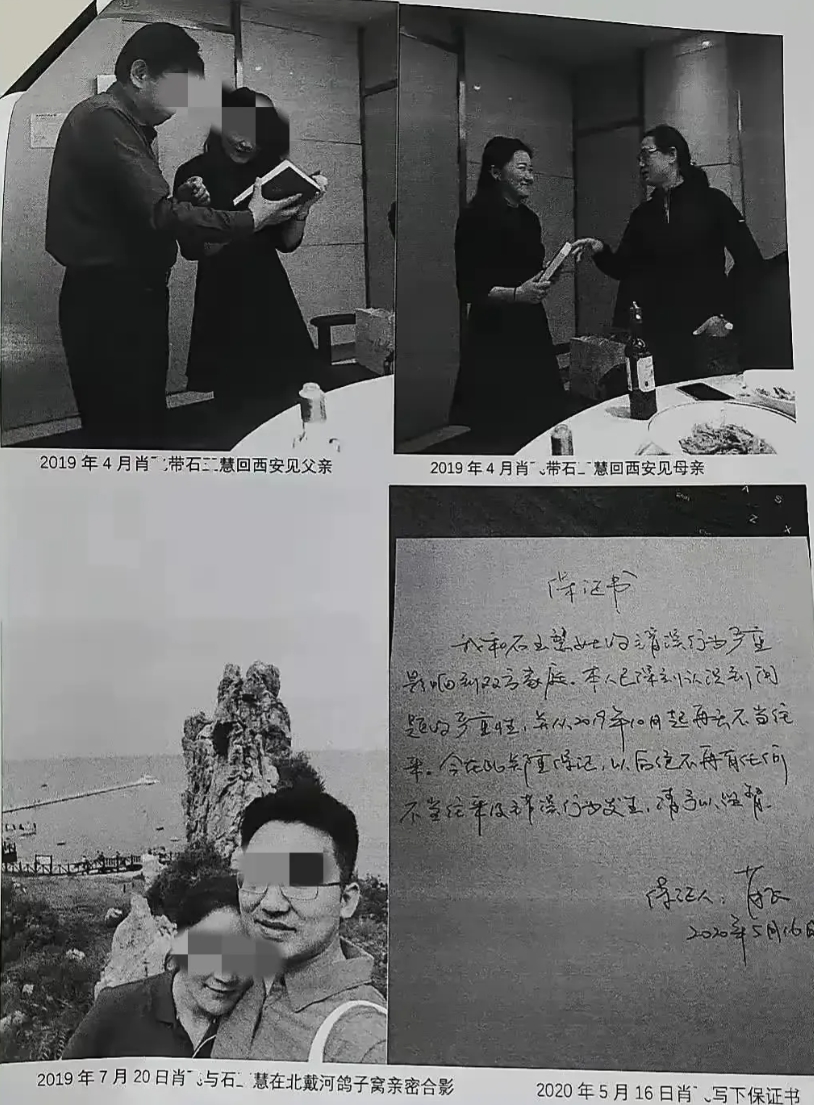 2019 年 4 月肖 带石 慧回西安见父亲
2019 年 4 月肖 带石 慧回西安见母亲
保证书
我和石玉慧女士的错误行为严重
影响到双方家庭。本人已深刻认识到问
题的严重性，并从2019年10月起再无不当往
来。今在此郑重保证，以后绝不再有任何
不当往来及错误行为发生，请予以监督。
保证人：肖飞
2020年5月16日
2019 年 7 月 20 日肖 与石 慧在北戴河鸽子窝亲密合影
2020 年 5 月 16 日肖 写下保证书